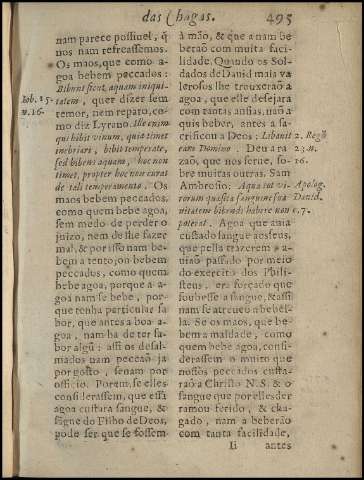 das Chagas. 495
nam parece possiuel, q̃
nos nam refreassemos.
Os maos, que como a-
goa bebem peccados:
Bibunt sicut aquam iniqui-
Iob. 15. tatem, quer dizer sem
n. 16. temor, nem reparo, co-
mo diz Lyrano. Ille enim
qui bibit vinum, quia timet
inebriari, bibit temperate,
sed bibens aquam, hoc non
timet, propter hoc non curat
de tali temperamento. Os
maos bebem peccados,
como quem bebe agoa,
sem medo de perder o
juizo, nem de lhe fazer
mal, & por isso nam be-
bem a tento, ou bebem
peccados, como quem
bebe agoa, porque a a-
goa nam se bebe, por-
que tenha particular sa-
bor, que antes a boa a-
goa, nam ha de ter sa-
bor algũ: assi os desal-
mados nam peccaõ ja
por gosto, senam por
officio. Porem se elles
considerassem, que esta
agoa custara sangue, &
sangue do Filho de Deos,
pode ser que se fossem
à mão, & que a nam be
beraõ com muita faci-
lidade. Quando os Sol-
dados de Dauid mais va
lerosos lhe trouxeraõ a
agoa, que elle desejara
com tantas ansias, naõ a
quis beber, antes a sa-
crificou a Deos: Libauit 2. Reg.
eam Domino. Deu a ra 23. n.
zaõ, que nos serue, so- 16.
bre muitas outras. Sam
Ambrosio: Aqua tot vi- Apolog.
rorum quæsita sanguine sua Dauid.
uitatem bibendi habere non c. 7.
poterat. Agoa que auia
custado sangue aos seus,
que pella trazerem a-
uiaõ passado por meio
do exercito dos Phili-
steus, era forçado que
soubesse a sangue, & assi
nam se atreueo a bebel-
la. Se os maos, que be-
bem a maldade, como
quem bebe agoa, consi-
derassem o muito que
nossos peccados custa-
raõ a Christo N. S. & o
sangue que por elles der
ramou ferido, & cha-
gado, nam a beberão
com tanta facilidade,
Ii antes